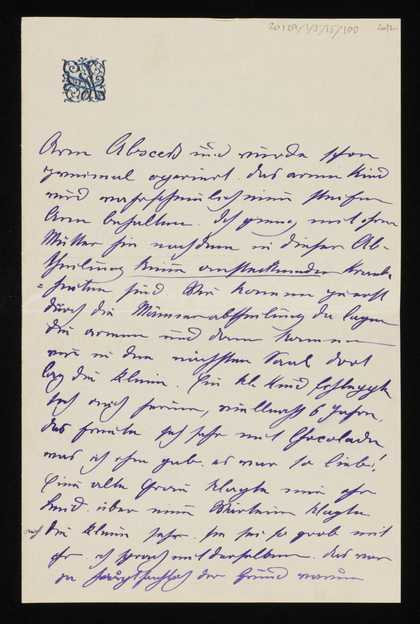 Arm Abscess und wurde schon
zweimal operiert. das arme Kind
wird wahrscheinlich einen steifen
Arm behalten. Ich gieng mit ihrer
Mutter hin nachdem in dieser Ab-
theilung keine ansteckenden Krank
=heiten sind Wir kamen zuerst
durch die Männerabtheilung da lagen
die armen und dann kamen
wir in den nächsten Saal dort
lag die Kleine. Ein kl. Kind
auch herein, vielleicht 6 Jahre,
das freute sich sehr mit Chocolade
was ich ihm gab. es war so lieb!
Eine alte Frau klagte mir ihr
Leid. über eine Wärterin klagte
auch die Kleine sehr. sie sei so grob mit
ihr. ich sprach mit derselben. das war
ja hauptsächlich der Grund warum